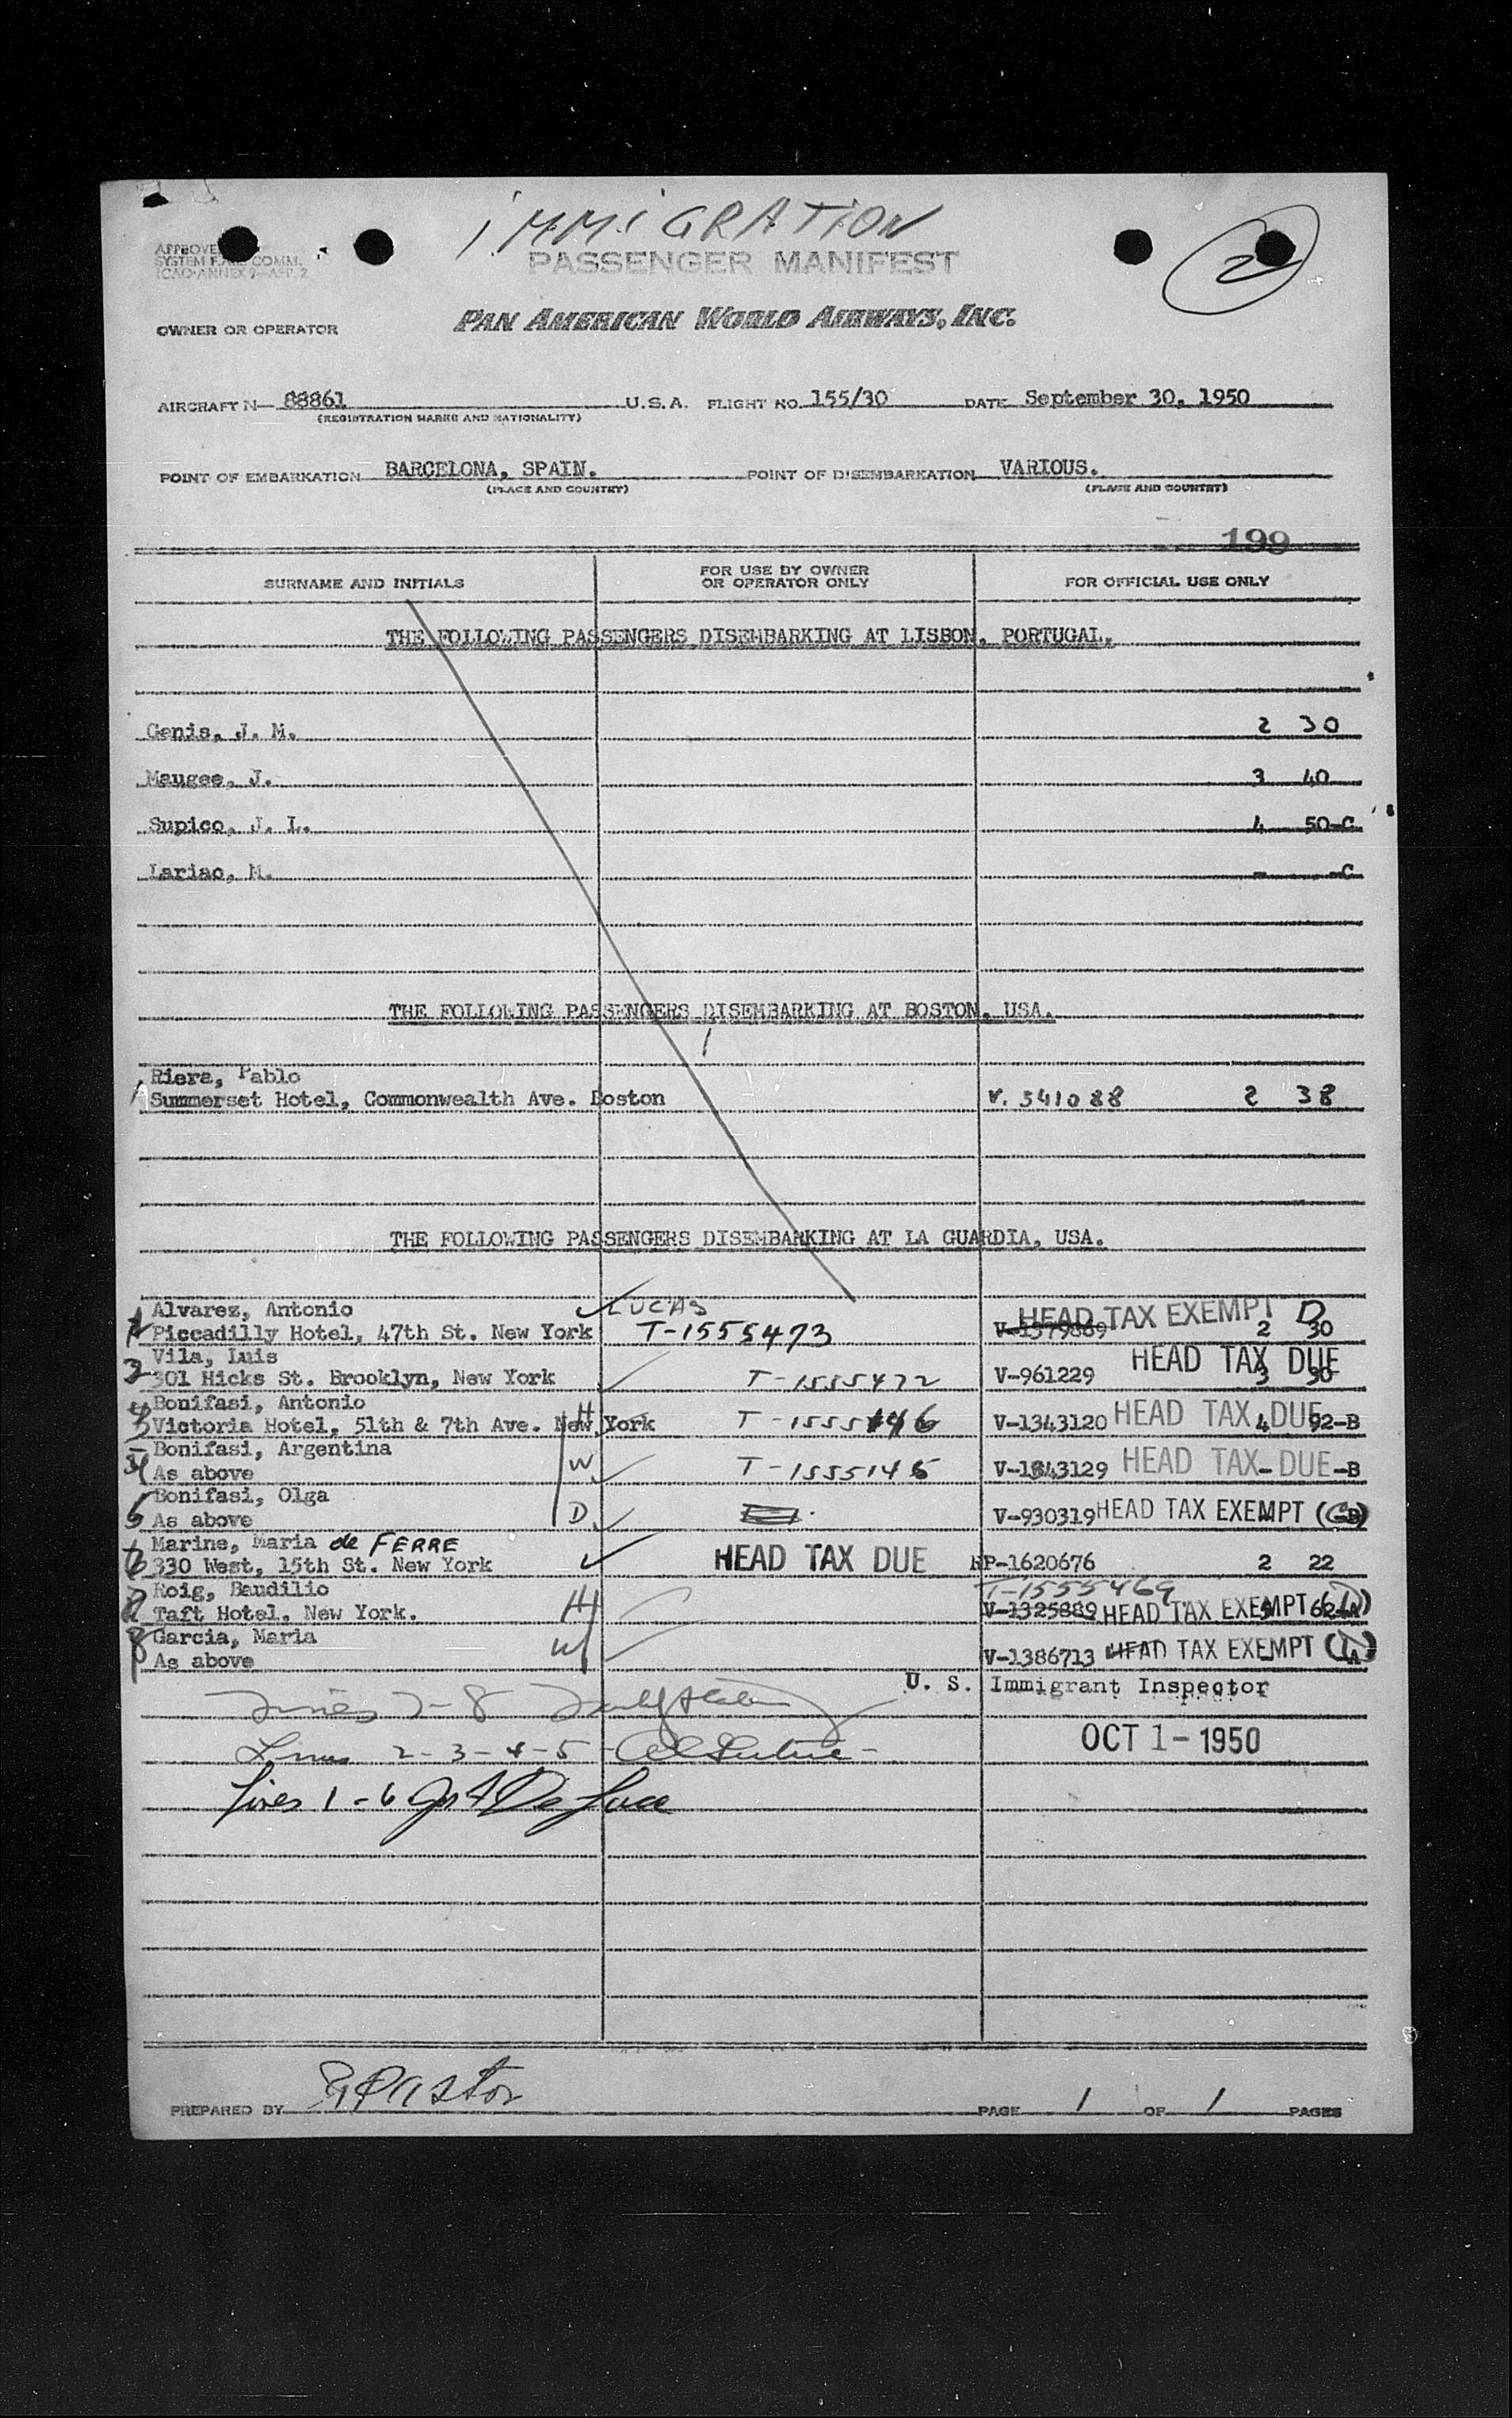 IMMIGRATION
PASSENGER MANIFEST
2
APPROVE
SYSTEM F. COMM.
ICAO-ANNEX 9-APP. 2
OWNER OR OPERATOR PAN AMERICAN WORLD AIRWAYS, INC.
AIRCRAFT N- 88861 U.S.A. FLIGHT NO. 155/30 DATE September 30, 1950
(REGISTRATION MARKS AND NATIONALITY)
POINT OF EMBARKATION BARCELONA, SPAIN. POINT OF DISEMBARKATION VARIOUS.
(PLACE AND COUNTRY) (PLACE AND COUNTRY)
199
SURNAME AND INITIALS FOR USE BY OWNER OR OPERATOR ONLY FOR OFFICIAL USE ONLY
THE FOLLOWING PASSENGERS DISEMBARKING AT LISBON, PORTUGAL.
Genis, J. M. 2 30
Maugee, J. 3 40
Supico, J. L. 4 50-C
Lariao, M. - -C
THE FOLLOWING PASSENGERS DISEMBARKING AT BOSTON, USA.
1
Riera, Pablo
1 Summerset Hotel, Commonwealth Ave. Boston V. 341088 2 38
THE FOLLOWING PASSENGERS DISEMBARKING AT LA GUARDIA, USA.
Alvarez, Antonio LUCAS HEAD TAX EXEMPT D
Piccadilly Hotel, 47th St. New York T-1555473 V-1379889 2 30
Vila, Luis HEAD TAX DUE
301 Hicks St. Brooklyn, New York T-1555472 V-961229 3 30
Bonifasi, Antonio H
Victoria Hotel, 51th & 7th Ave. New York T-1555146 V-1343120 HEAD TAX DUE 4 92-B
Bonifasi, Argentina
As above W T-1555145 V-1343129 HEAD TAX DUE - -B
Bonifasi, Olga
As above D V-930319 HEAD TAX EXEMPT
Marine, Maria de FERRE
330 West, 15th St. New York HEAD TAX DUE RP-1620676 2 22
Roig, Baudilio T-1555469
Taft Hotel. New York. H V-1325889 HEAD TAX EXEMPT
Garcia, Maria
As above W V-1386713 HEAD TAX EXEMPT
U. S. Immigrant Inspector
Lines 7-8
Lines 2-3-4-5
OCT 1 - 1950
Lines 1-6
PREPARED BY Pastor PAGE 1 OF 1 PAGES